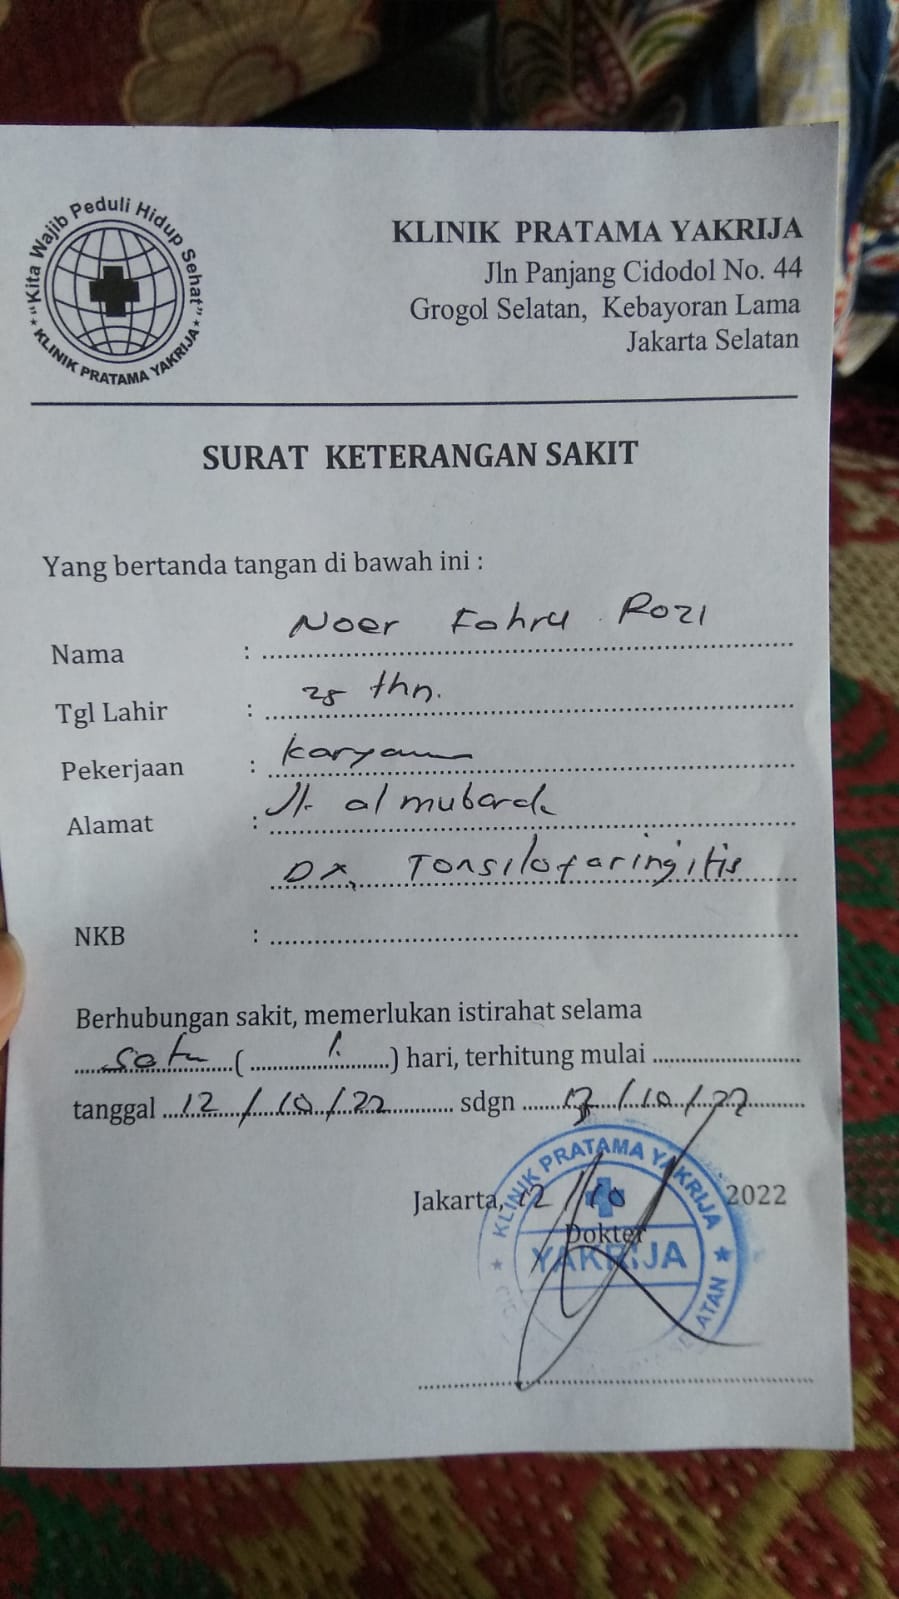 "Kita Wajib Peduli Hidup Sehat"
KLINIK PRATAMA YAKRIJA
KLINIK PRATAMA YAKRIJA
Jln Panjang Cidodol No. 44
Grogol Selatan, Kebayoran Lama
Jakarta Selatan
SURAT KETERANGAN SAKIT
Yang bertanda tangan di bawah ini :
Nama : Noer Fahru Rozi
Tgl Lahir : 28 thn.
Pekerjaan :
Alamat : Jl. al mubarok
DX, Tonsilofaringitis
NKB :
Berhubungan sakit, memerlukan istirahat selama
satu ( 1. ) hari, terhitung mulai
tanggal 12 / 10 / 22 sdgn / 10 / 22
Jakarta, 12 / 10 2022
Dokter
KLINIK PRATAMA YAKRIJA
YAKRIJA